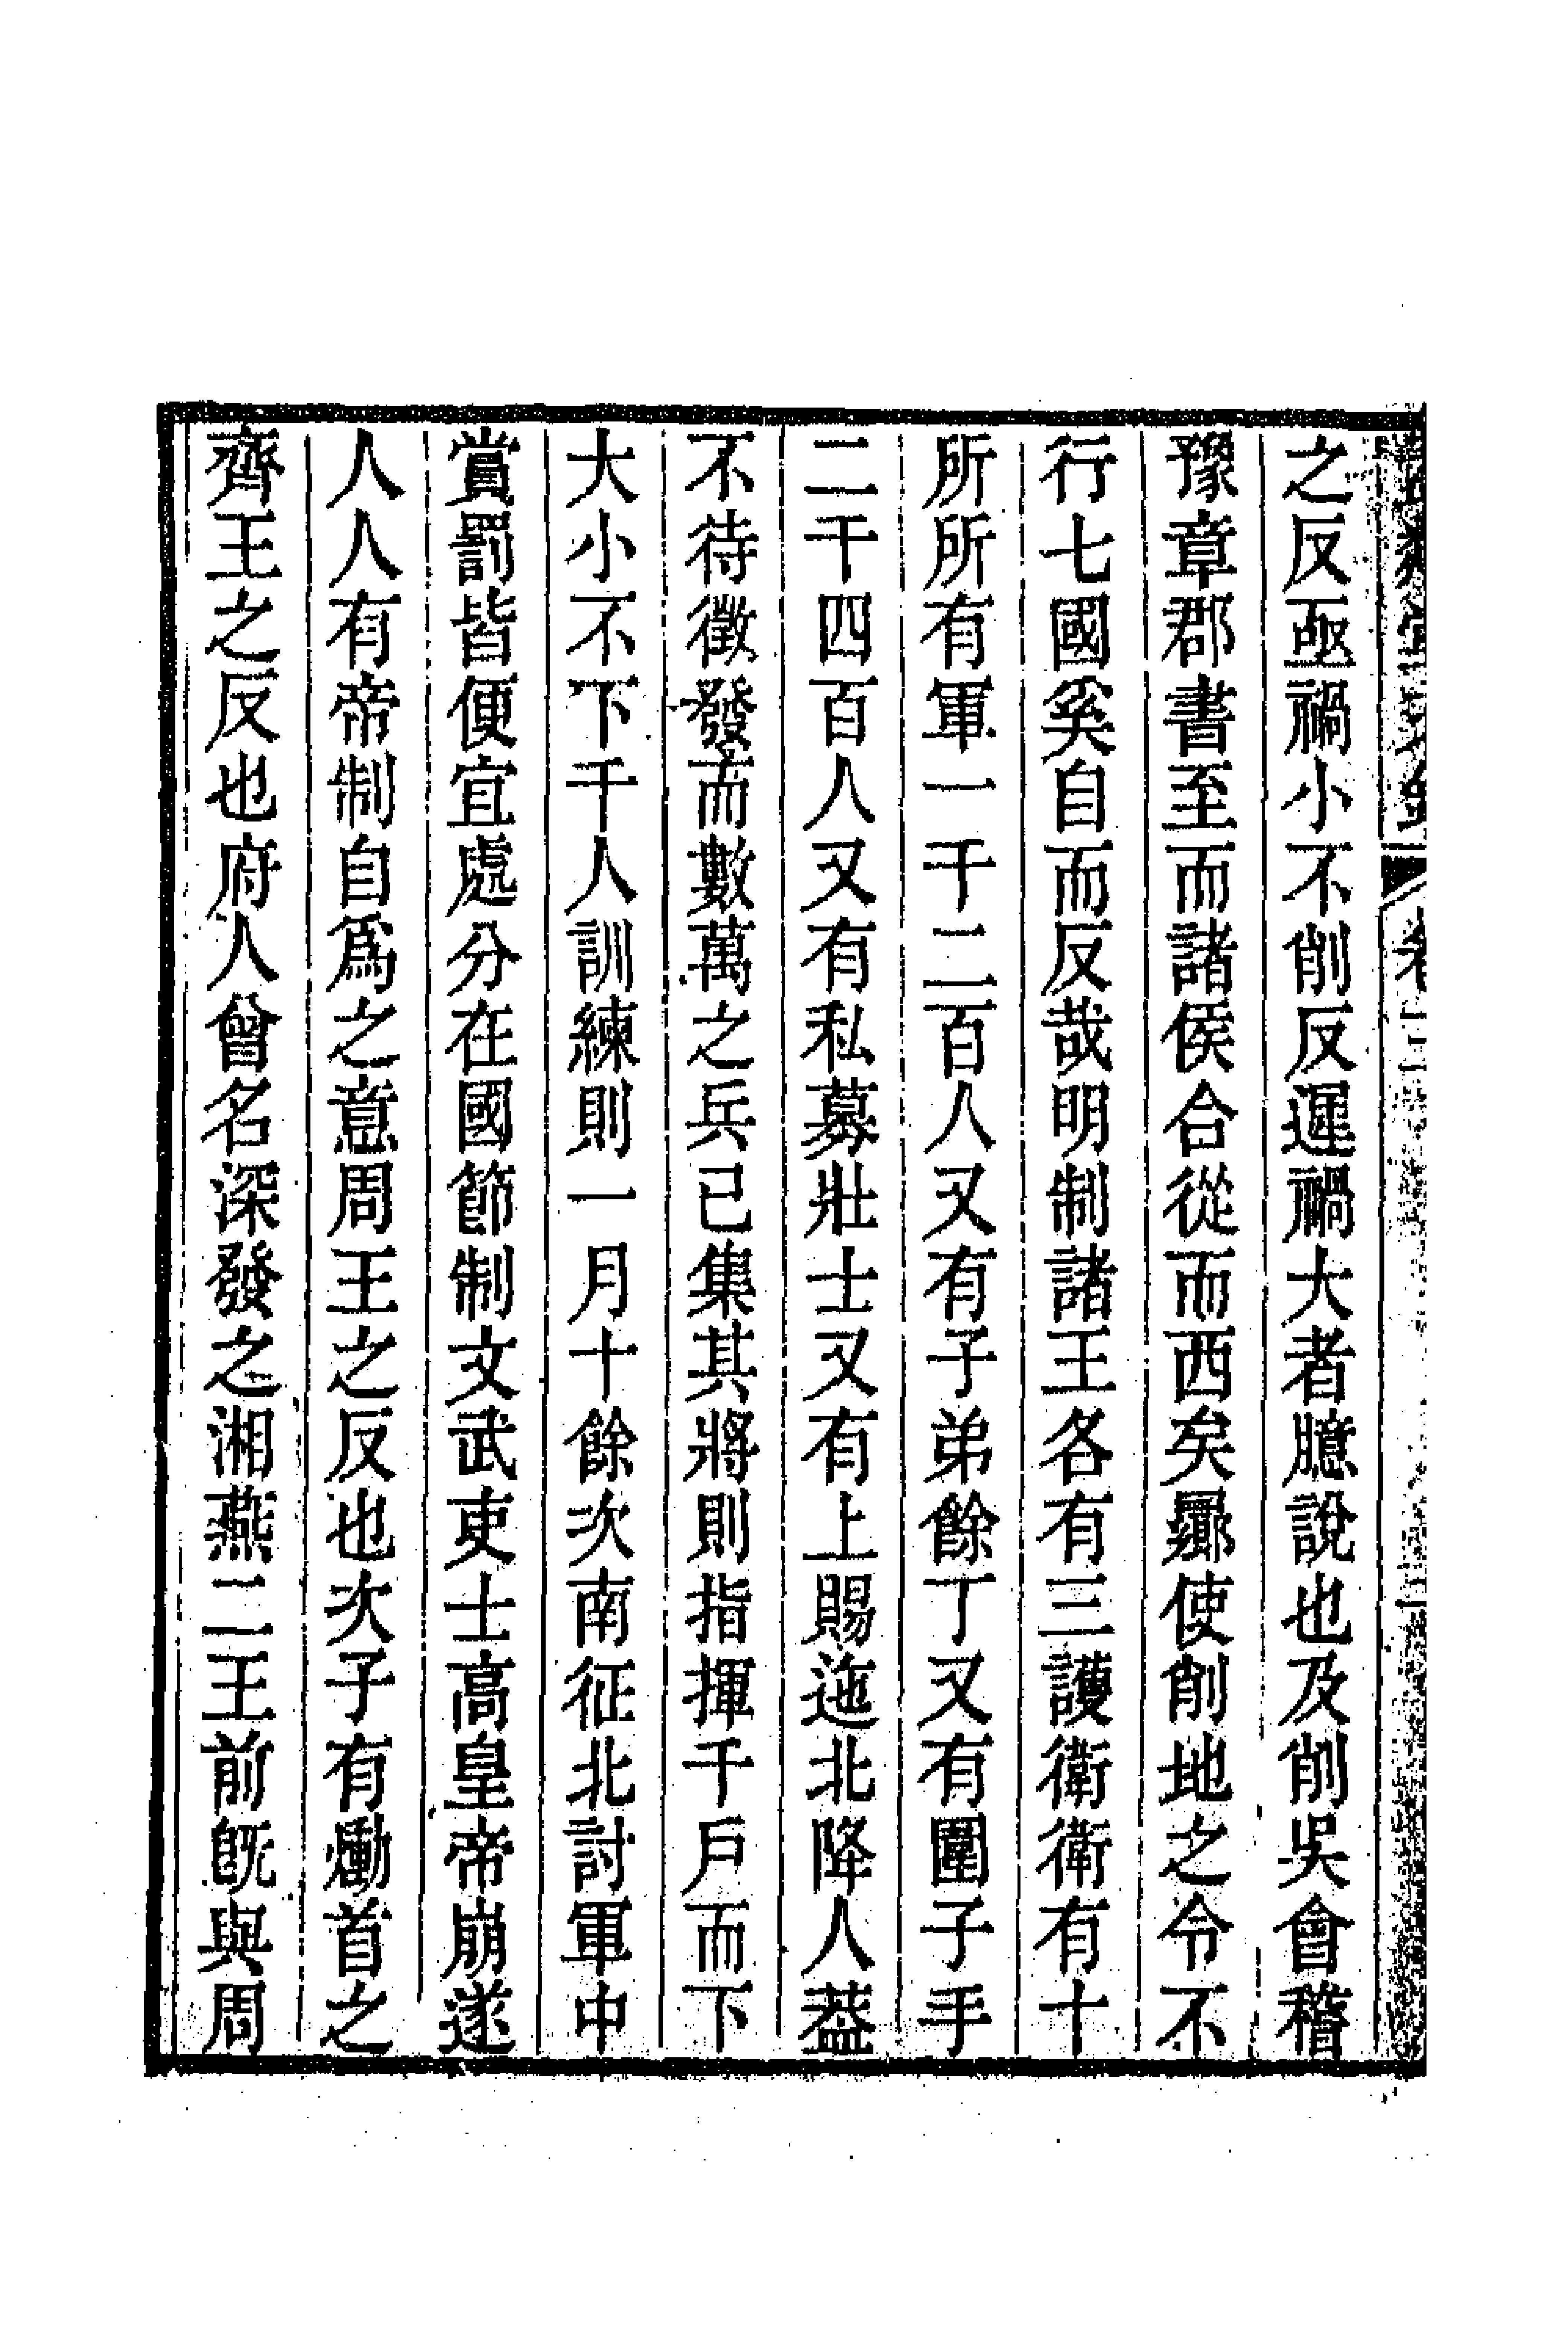 之反亟禍小不削反遲禍大者臆說也及削吳會稽
豫章郡書至而諸侯合從而西矣曏使削地之令不
行七國奚自而反哉明制諸王各有三護衛衛有十
所所有軍一千二百人又有子弟餘丁又有圍子手
二千四百人又有私募壯士又有上賜迤北降人葢
不待徵發而數萬之兵已集其將則指揮千戶而下
大小不下千人訓練則一月十餘次南征北討軍中
賞罰皆便宜處分在國節制文武吏士高皇帝崩遂
人人有帝制自爲之意周王之反也次子有爋首之
齊王之反也府人曾名深發之湘燕二王前旣與周